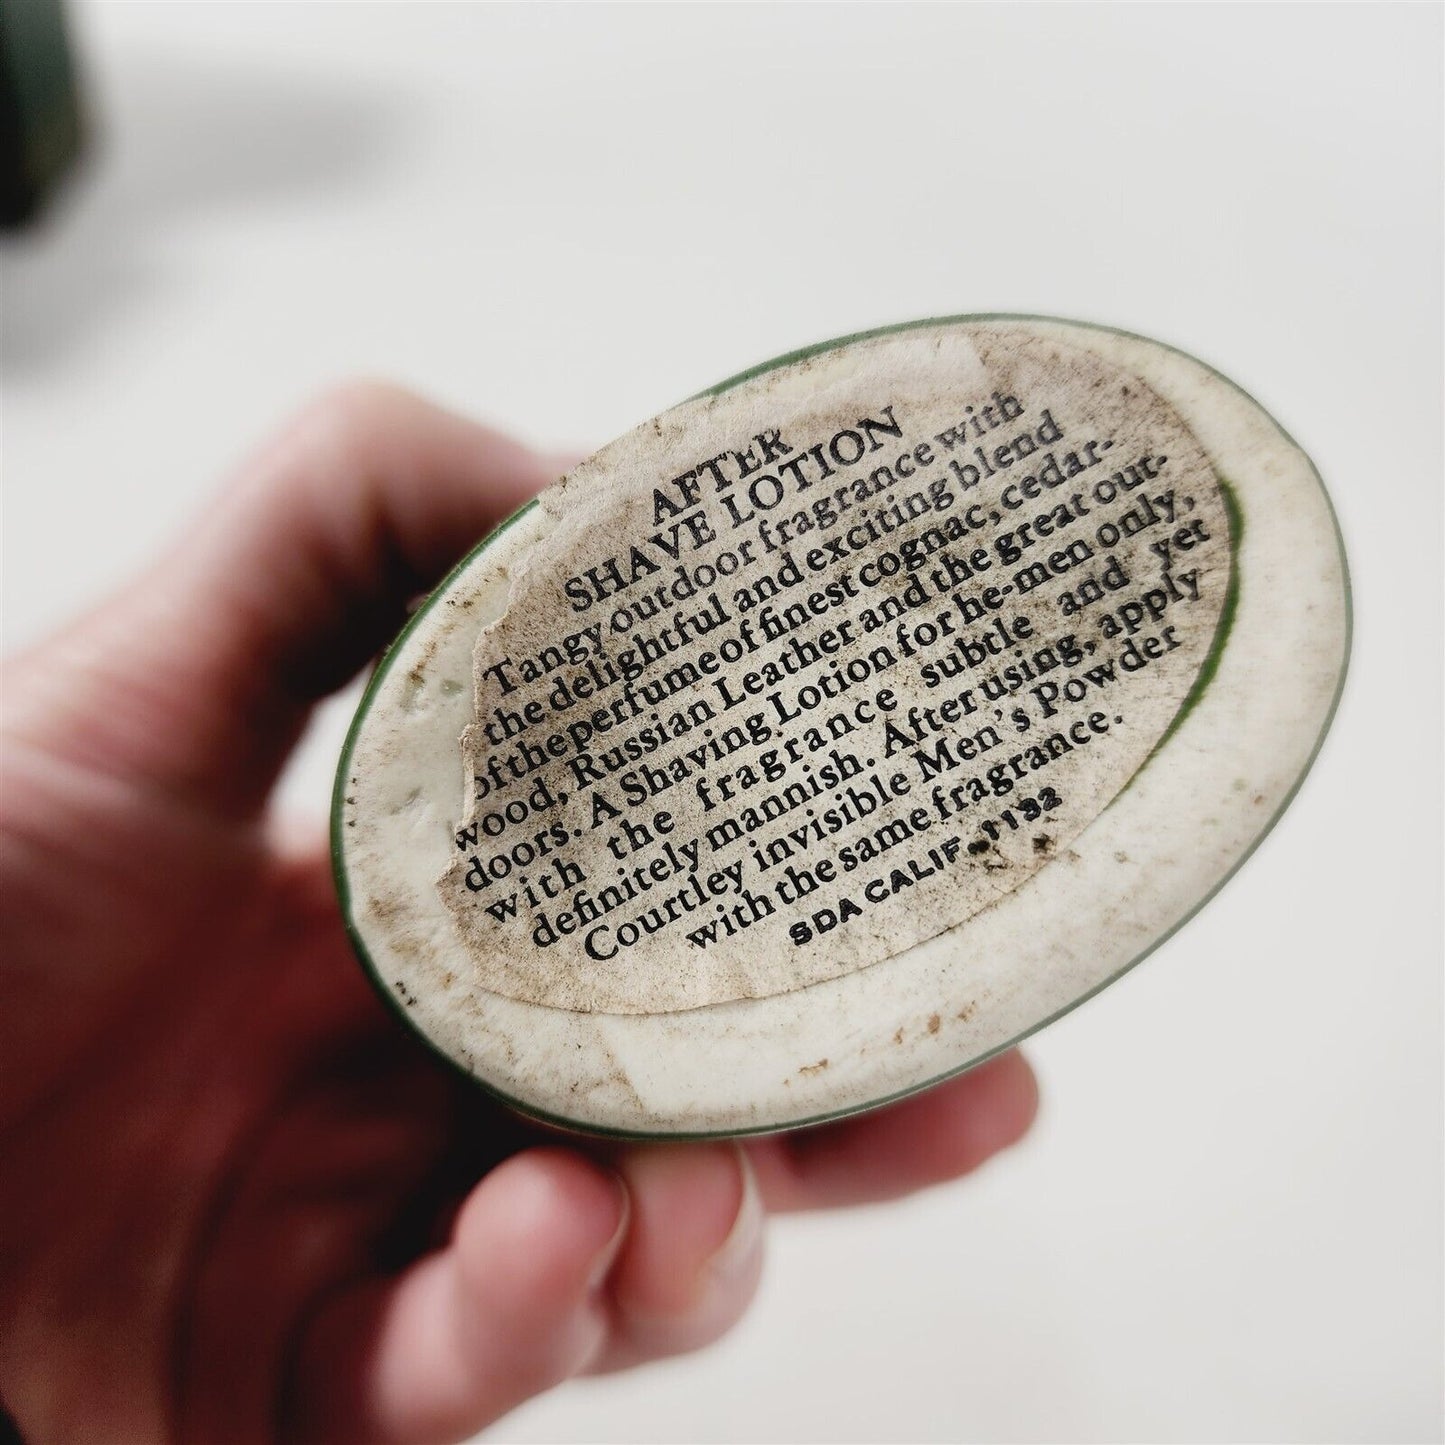 AFTER
SHAVE LOTION
Tangy outdoor fragrance with
the delightful and exciting blend
of the perfume of finest cognac, cedar-
wood, Russian Leather and the great out-
doors. A Shaving Lotion for he-men only,
with the fragrance subtle and yet
definitely mannish. After using, apply
Courtley invisible Men's Powder
with the same fragrance.
SDA CALIF. 1132